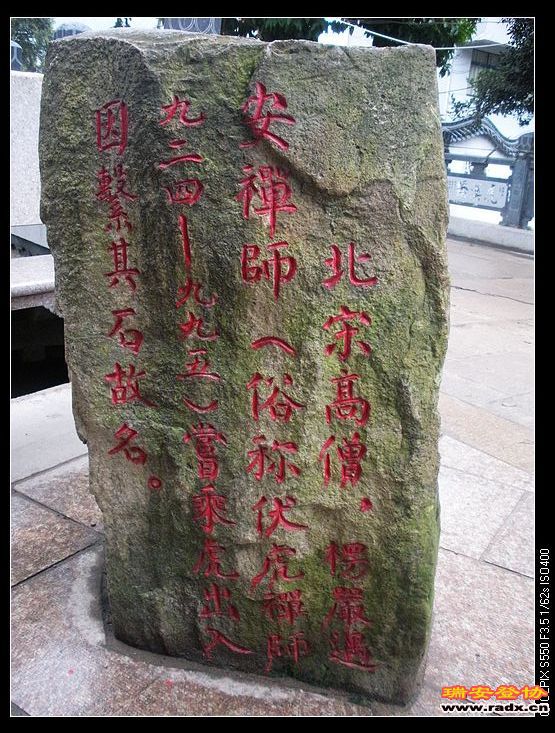 北宋高僧，楞嚴遇
安禪师（俗称伏虎禪师
九二四—九九五）嘗乘虎出入
因繫其石故名。
瑞安登协
www.radx.cn
PIX S550 F3.5 1/62s ISO400